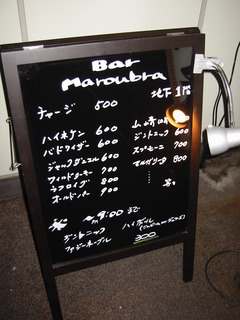 Bar
Maroubra
地下1階
チャージ 500
ハイネケン 600
バドワイザー 600
ジャックダニエル 600
ワイルドターキー 700
フォアローゼス 800
オールドパー 900
ジントニック 600
スプモーニ 700
マルガリータ 800
‥‥
等々
9:00まで
ジントニック
ファジーネーブル
ハイボール
300